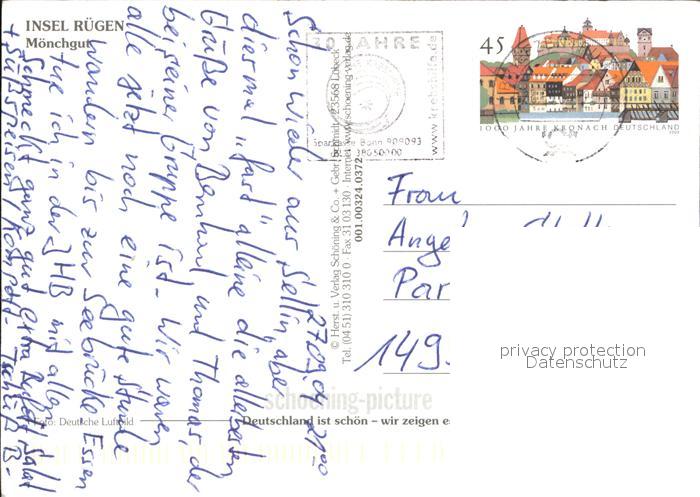 INSEL RÜGEN
Mönchgut
27.09.04 2100
Schon wieder aus Sellin, aber
diesmal "fast" alleine die allerbesten
Grüße von Bernhard und Thomas, der
bei seiner Gruppe ist. Wir waren
alle jetzt noch eine gute Stunde
wandern bis zur Seebrücke. Essen
tue ich in der JHB mit allen
schmeckt ganz gut extra Salat
+ Süßspeisen / Kompott - Tschüß B-
Foto: Deutsche Luftbild
© Herst. u. Verlag Schöning & Co. + Gebr. Schmidt, 23568 Lübeck
Tel. (04 51) 310 310 0 · Fax 31 03 130 · Internet: www.schoening-verlag.de
001.00324.0372
schoening-picture
Deutschland ist schön – wir zeigen e
JAHRE
www.krebshilfe.de
Sparkasse Bonn 909093
BLZ 38050000
45
1000 JAHRE KRONACH DEUTSCHLAND
2003
Frau
Ange
Par
149.
privacy protection
Datenschutz